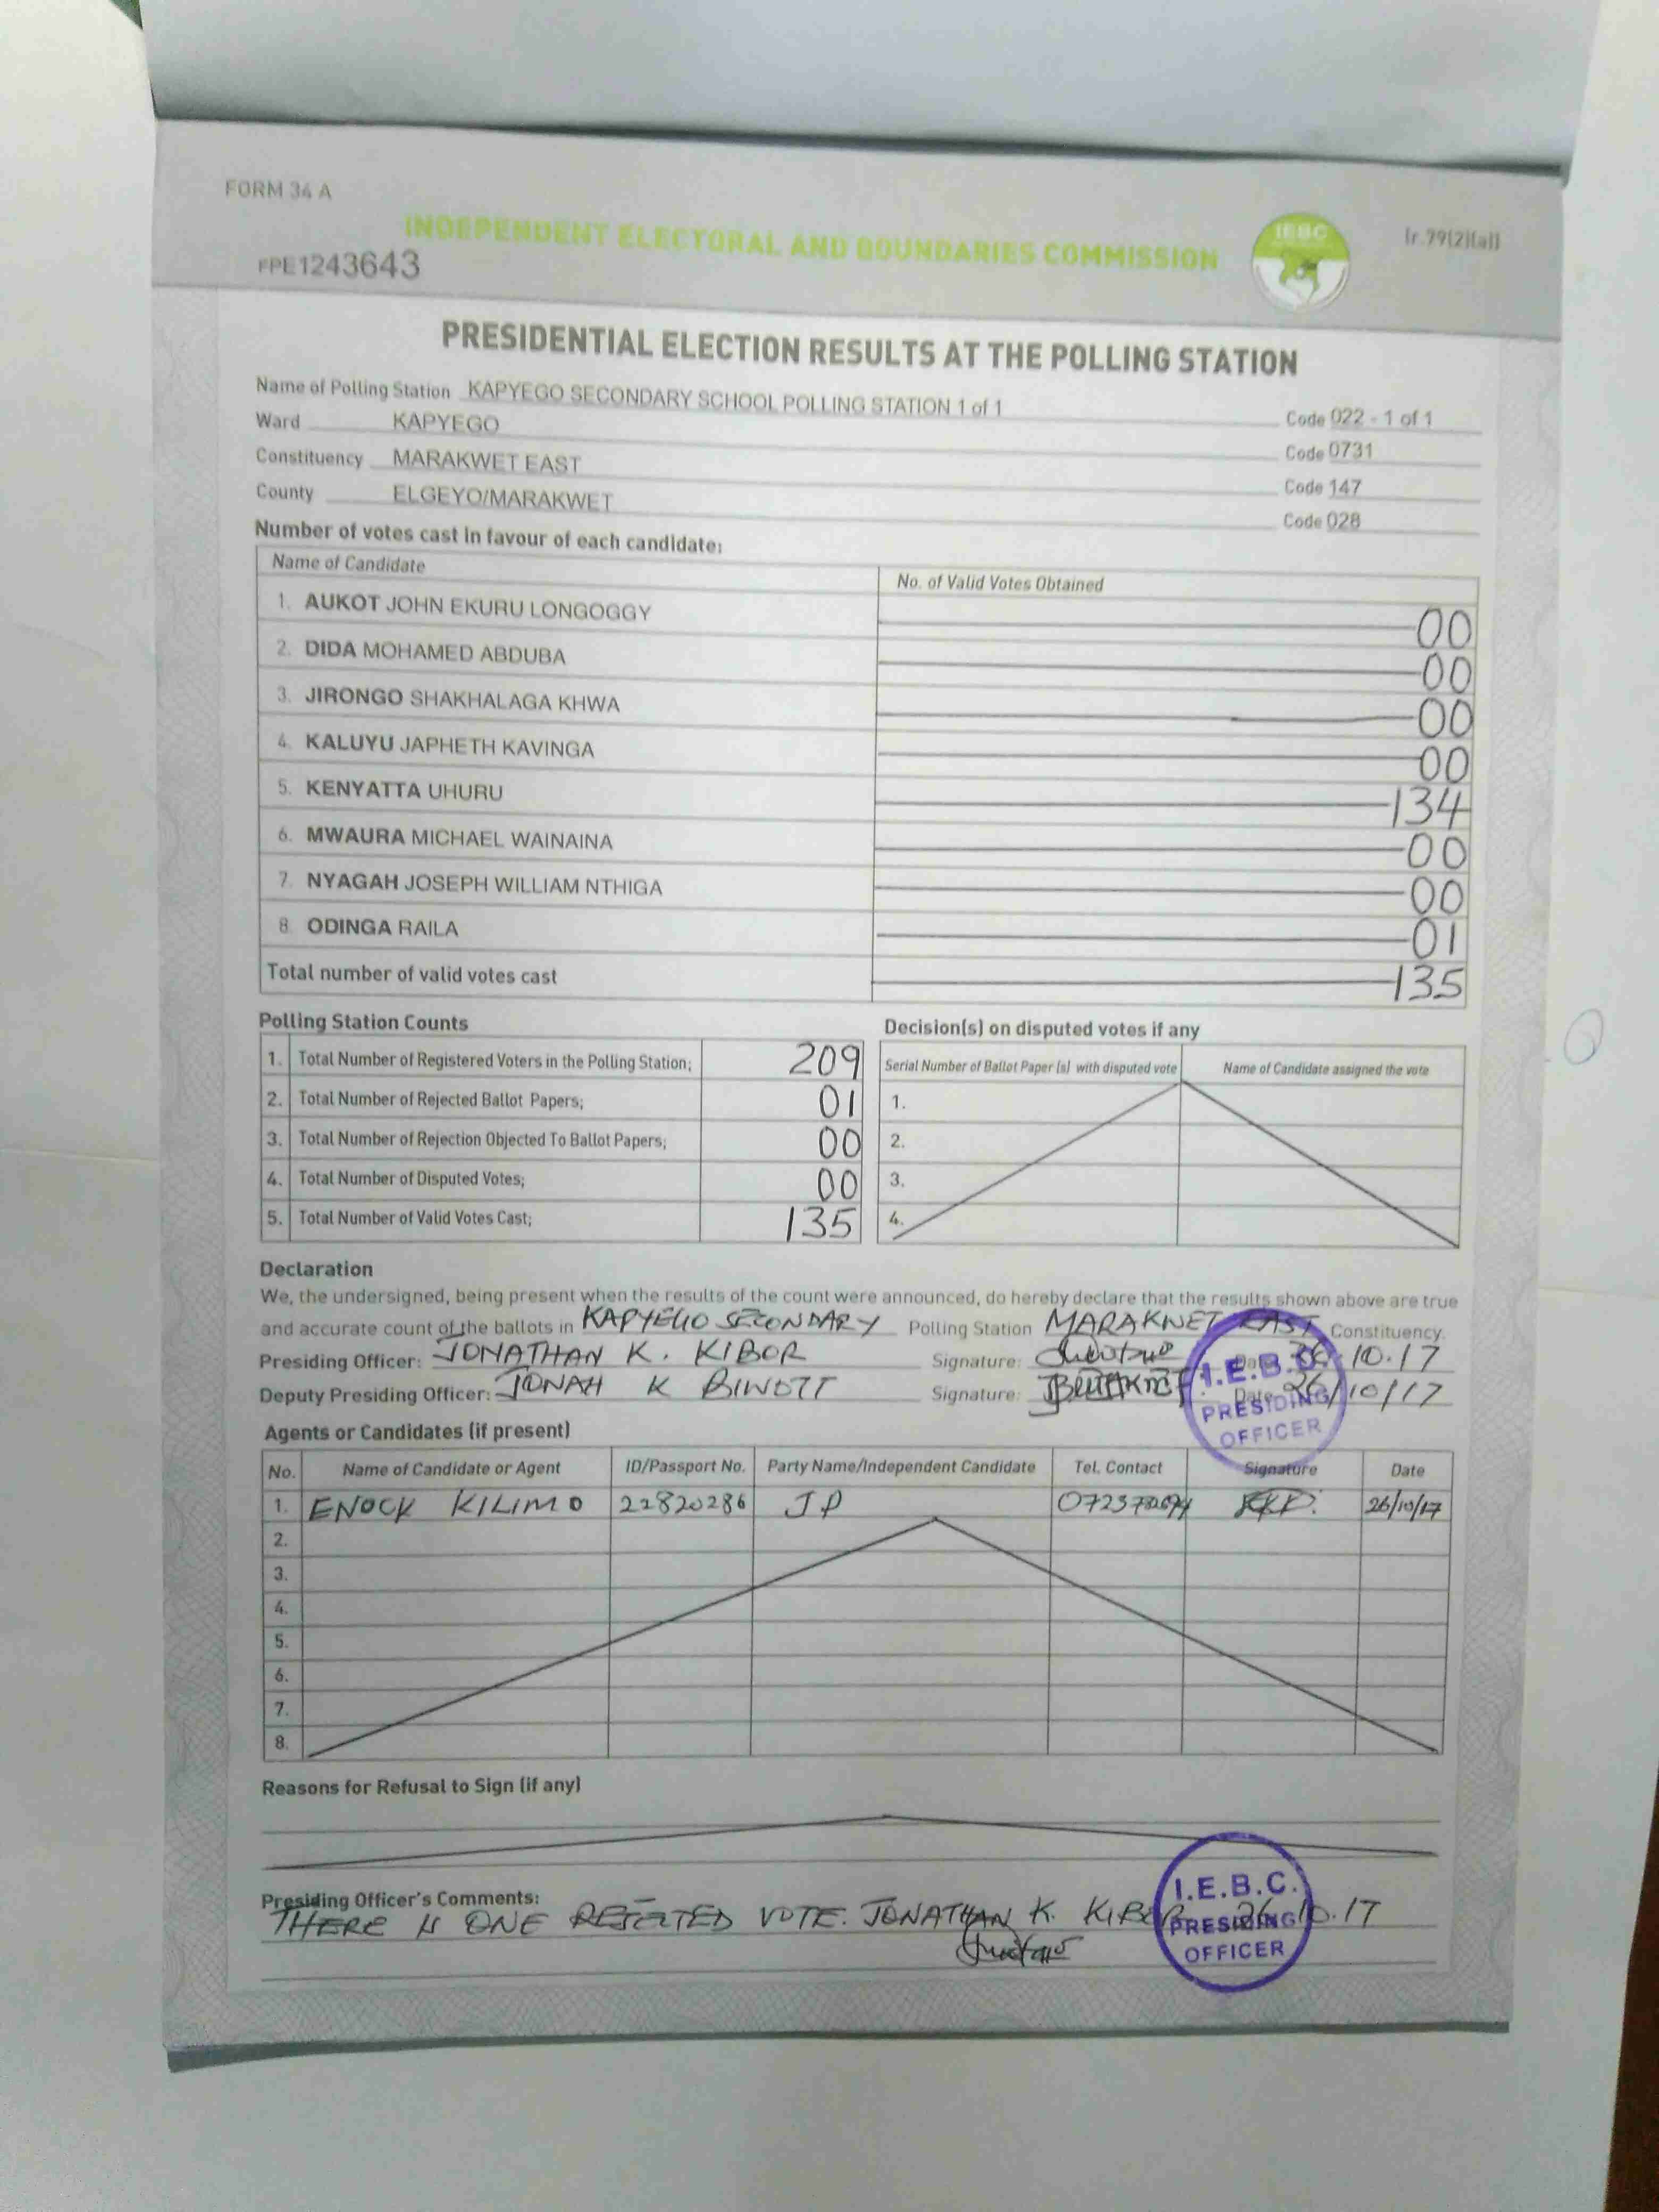 FORM 34 A
INDEPENDENT ELECTORAL AND BOUNDARIES COMMISSION
IEBC
(r.79(2)(a))
FPE1243643
PRESIDENTIAL ELECTION RESULTS AT THE POLLING STATION
Name of Polling Station KAPYEGO SECONDARY SCHOOL POLLING STATION 1 of 1 Code 022 - 1 of 1
Ward KAPYEGO Code 0731
Constituency MARAKWET EAST Code 147
County ELGEYO/MARAKWET Code 028
Number of votes cast in favour of each candidate:
Name of Candidate No. of Valid Votes Obtained
1. AUKOT JOHN EKURU LONGOGGY 00
2. DIDA MOHAMED ABDUBA 00
3. JIRONGO SHAKHALAGA KHWA 00
4. KALUYU JAPHETH KAVINGA 00
5. KENYATTA UHURU 134
6. MWAURA MICHAEL WAINAINA 00
7. NYAGAH JOSEPH WILLIAM NTHIGA 00
8. ODINGA RAILA 01
Total number of valid votes cast 135
Polling Station Counts
1. Total Number of Registered Voters in the Polling Station; 209
2. Total Number of Rejected Ballot Papers; 01
3. Total Number of Rejection Objected To Ballot Papers; 00
4. Total Number of Disputed Votes; 00
5. Total Number of Valid Votes Cast; 135
Decision(s) on disputed votes if any
Serial Number of Ballot Paper (s) with disputed vote Name of Candidate assigned the vote
1.
2.
3.
4.
Declaration
We, the undersigned, being present when the results of the count were announced, do hereby declare that the results shown above are true
and accurate count of the ballots in KAPYEGO SECONDARY Polling Station MARAKWET EAST Constituency.
Presiding Officer: JONATHAN K. KIBOR Signature: Date 26.10.17
Deputy Presiding Officer: JONAH K BIWOTT Signature: Date 26/10/17
I.E.B.C.
PRESIDING
OFFICER
Agents or Candidates (if present)
No. Name of Candidate or Agent ID/Passport No. Party Name/Independent Candidate Tel. Contact Signature Date
1. ENOCK KILIMO 22820286 JP 26/10/17
2.
3.
4.
5.
6.
7.
8.
Reasons for Refusal to Sign (if any)
Presiding Officer's Comments:
THERE IS ONE REJECTED VOTE. JONATHAN K. KIBOR 26.10.17
I.E.B.C.
PRESIDING
OFFICER